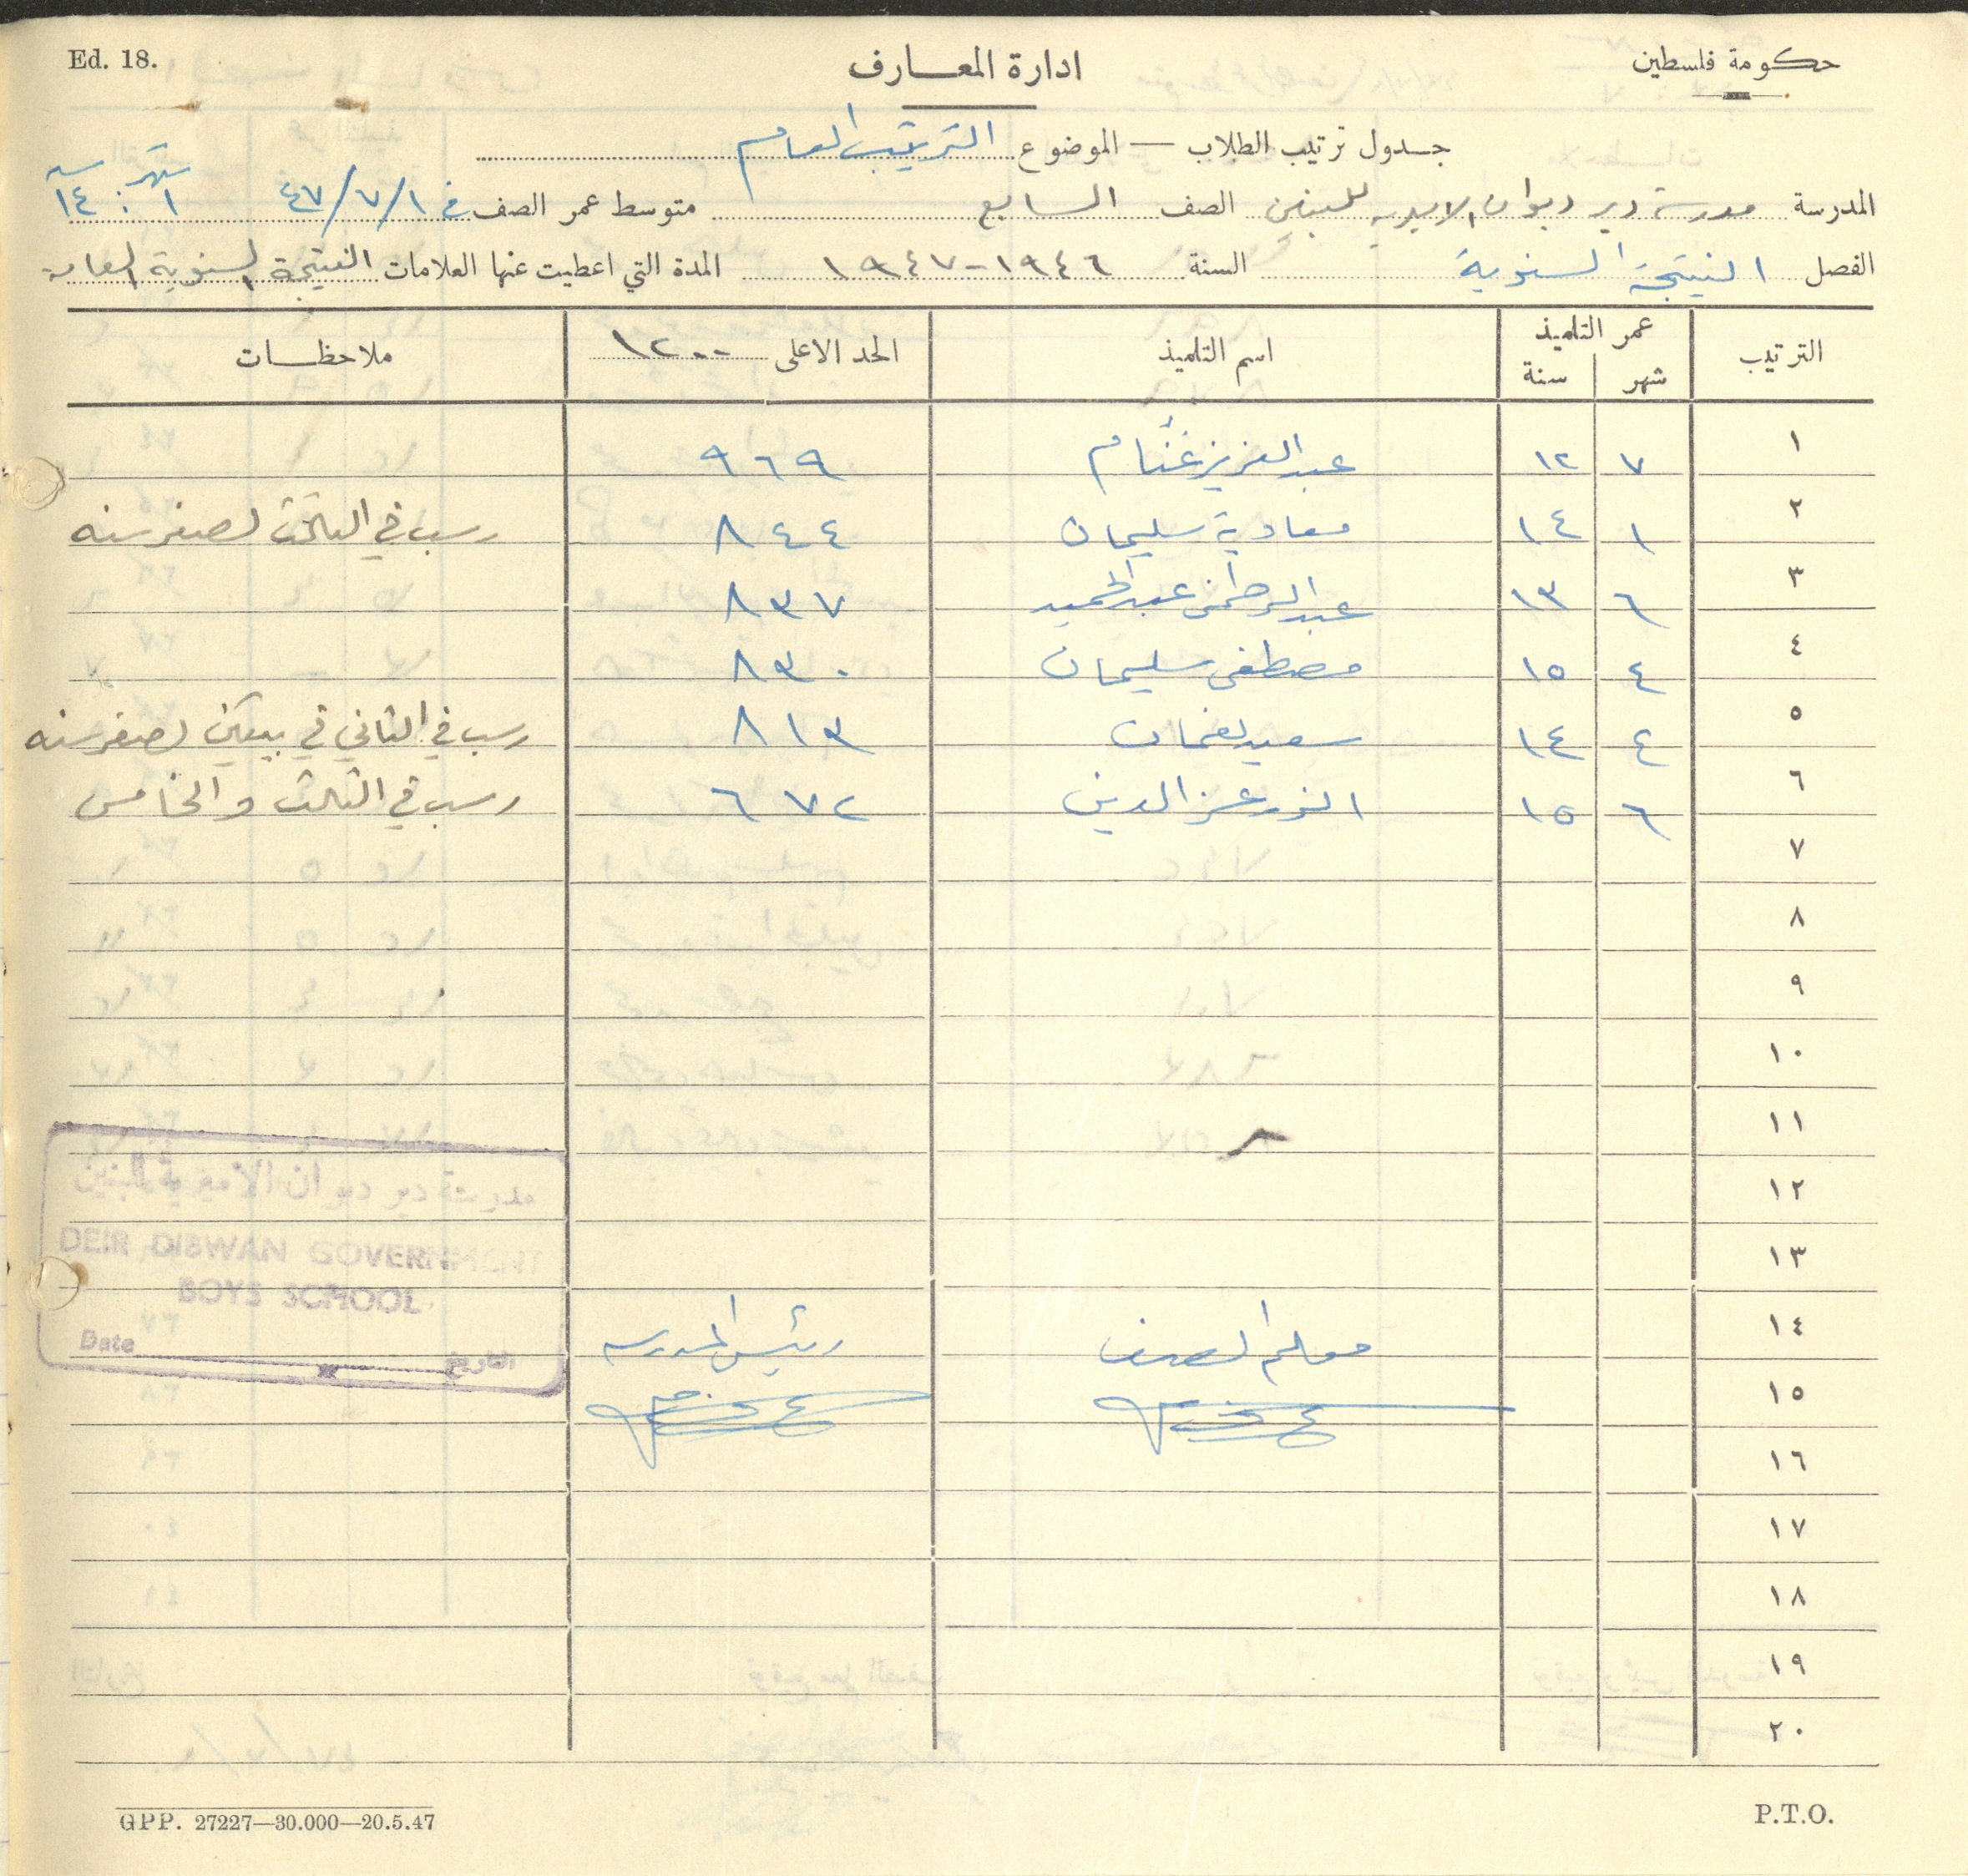 حكومة فلسطين
ادارة المعارف
Ed. 18.
جدول ترتيب الطلاب — الموضوع الترتيب العام
المدرسة مدرسة دير ديوان الاميرية للبنين الصف السابع متوسط عمر الصف في ١/٧/٤٧ شهر ١ : سنه ١٤
الفصل النتيجة السنوية السنة ١٩٤٦-١٩٤٧ المدة التي اعطيت عنها العلامات النتيجة السنوية العامة
الترتيب عمر التلميذ شهر سنة اسم التلميذ الحد الاعلى ١٢٠٠ ملاحظات
١ ٧ ١٢ عبد العزيز غنّام ٩٦٩
٢ ١ ١٤ معاوية سليمان ٨٤٤ رسب في الثالث لصغر سنه
٣ ٦ ١٣ عبد الرحمن عبد الحميد ٨٣٧
٤ ٤ ١٥ مصطفى سليمان ٨٣٠
٥ ٤ ١٤ سعيد نعمان ٨١٣ رسب في الثاني في بيتين لصغر سنه
٦ ٦ ١٥ انور عز الدين ٦٧٢ رسب في الثالث والخامس
٧
٨
٩
١٠
١١
١٢
١٣
١٤ معلم الصف رئيس المدرسه
١٥
١٦
١٧
١٨
١٩
٢٠
مدرسة دير ديوان الاميرية للبنين
DEIR DIBWAN GOVERNMENT
BOYS SCHOOL
Date التاريخ
GPP. 27227—30.000—20.5.47
P.T.O.